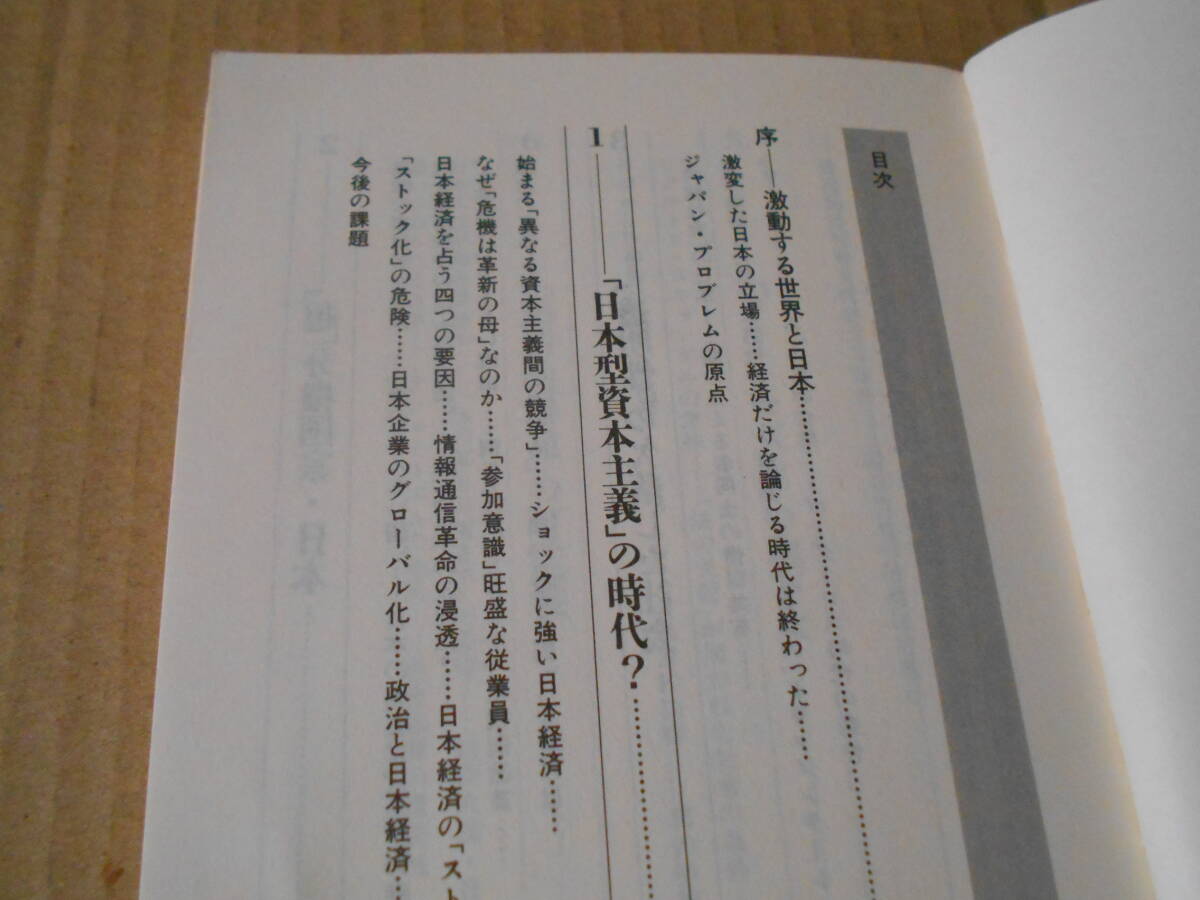 目次
序――激動する世界と日本……………
激変した日本の立場……経済だけを論じる時代は終わった……
ジャパン・プロブレムの原点
1――「日本型資本主義」の時代？……………
始まる「異なる資本主義間の競争」……ショックに強い日本経済……
なぜ「危機は革新の母」なのか……「参加意識」旺盛な従業員……
日本経済を占う四つの要因……情報通信革命の浸透……日本経済の「スト
「ストック化」の危険……日本企業のグローバル化……政治と日本経済…
今後の課題